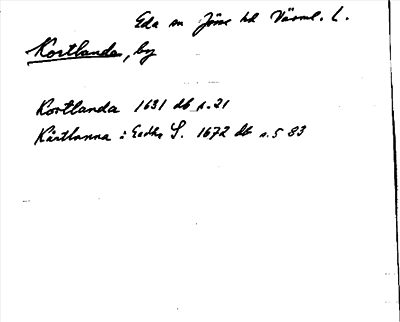 Eda sn Jösse hd Värml. L.
Kortlanda, by
Kortlanda 1631 db s. 21
Kårtlanna : Eedhe S. 1672 db s. 583